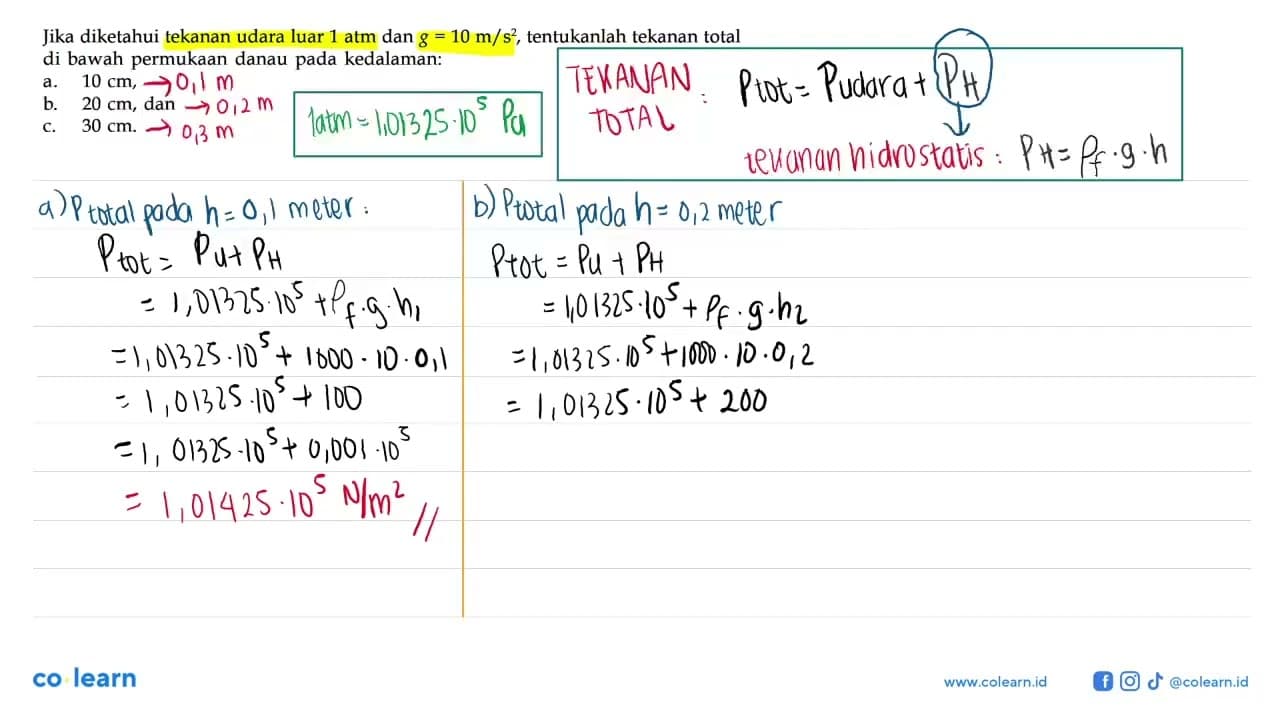 Jika diketahui tekanan udara luar 1 atm dan g = 10 m/s², tentukanlah tekanan total
di bawah permukaan danau pada kedalaman:
a. 10 cm, → 0,1 m
b. 20 cm, dan → 0,2 m
c. 30 cm. → 0,3 m
1atm = 1,01325·10⁵ Pa
TEKANAN TOTAL : Ptot = Pudara + PH
tekanan hidrostatis : PH = ρf · g · h
a) Ptotal pada h = 0,1 meter :
Ptot = Pu + PH
= 1,01325·10⁵ + ρf · g · h₁
= 1,01325·10⁵ + 1000 · 10 · 0,1
= 1,01325·10⁵ + 100
= 1,01325·10⁵ + 0,001·10⁵
= 1,01425·10⁵ N/m² //
b) Ptotal pada h = 0,2 meter
Ptot = Pu + PH
= 1,01325·10⁵ + ρf · g · h₂
= 1,01325·10⁵ + 1000 · 10 · 0,2
= 1,01325·10⁵ + 200
co learn
www.colearn.id
@colearn.id